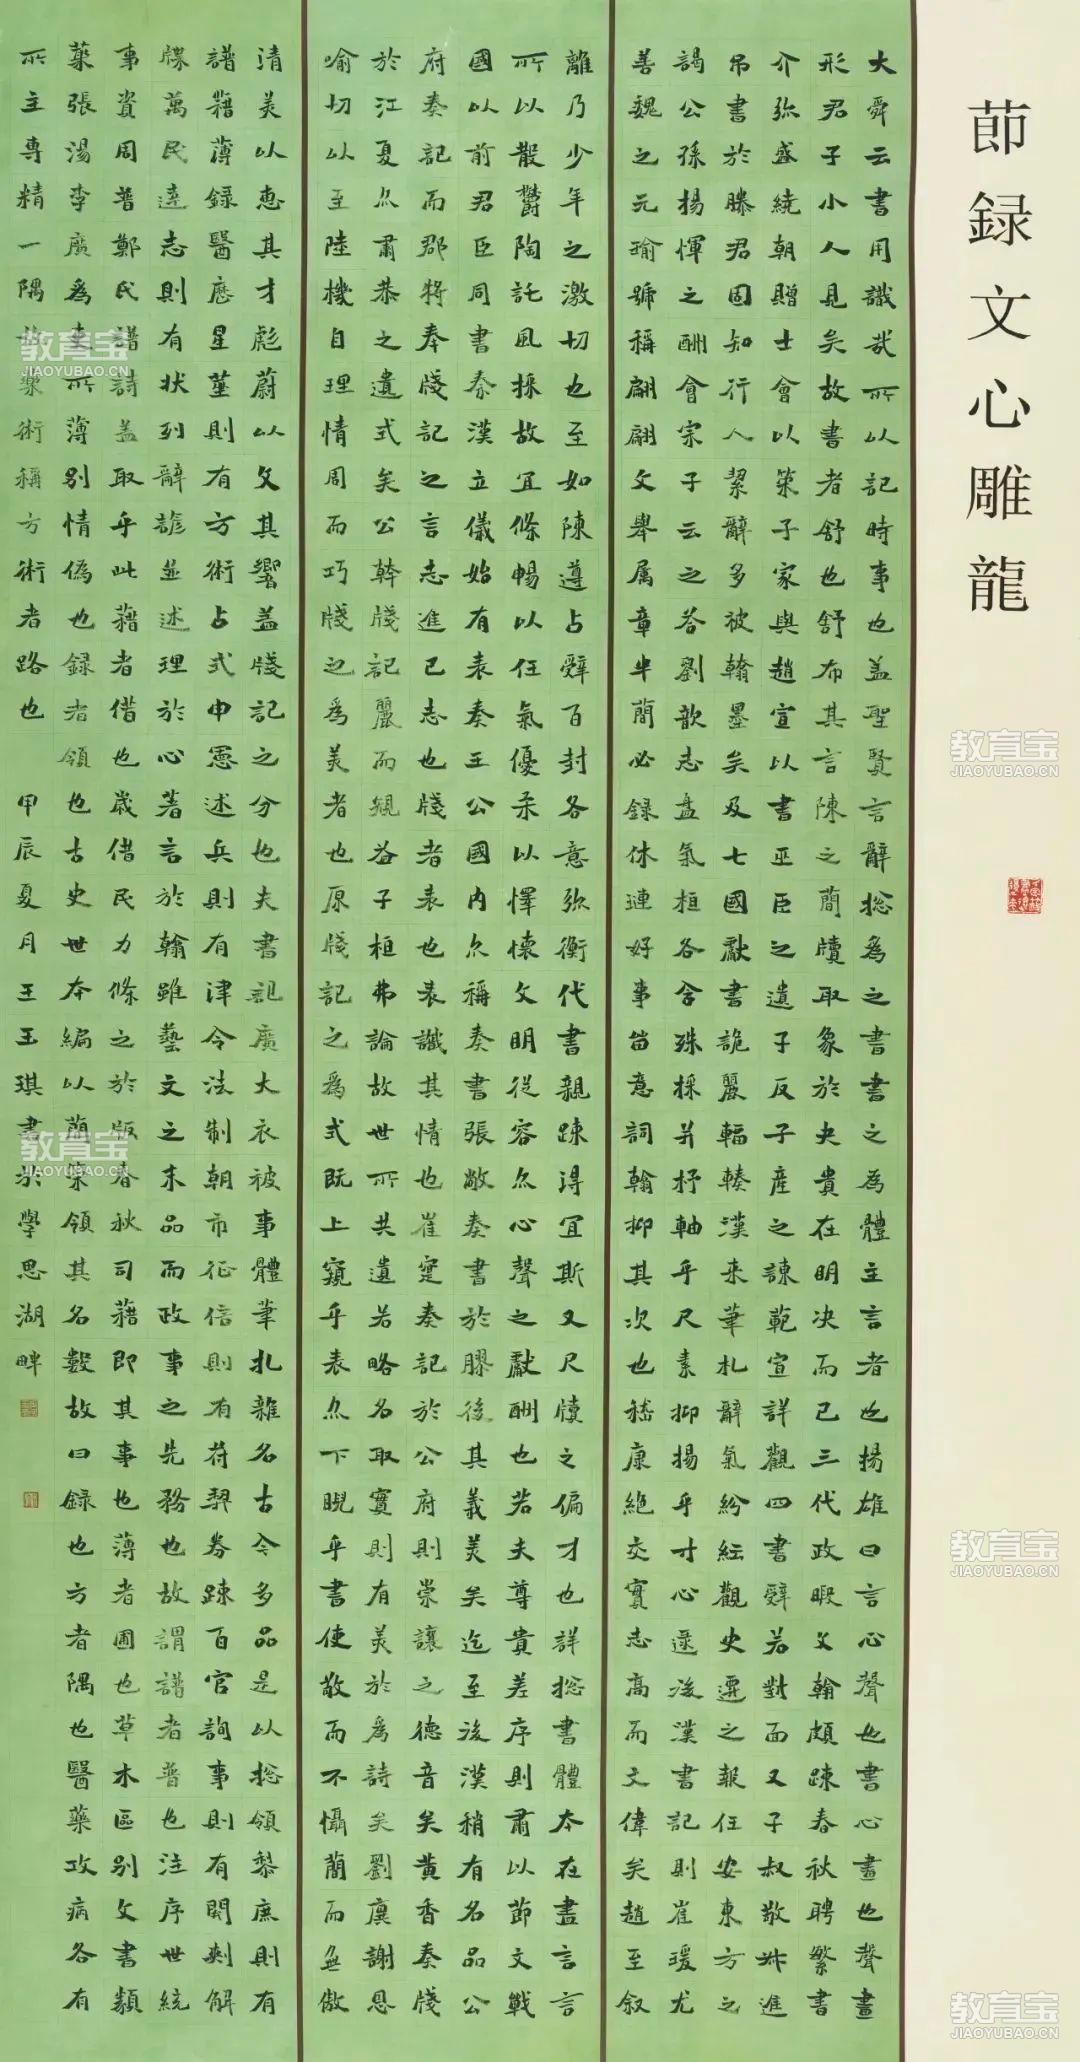 節録文心雕龍
大舜云書用識哉所以記時事也盖聖賢言辭捴為之書書之為體主言者也揚雄曰言心聲也書心畫也聲畫
形君子小人見矣故書者舒也舒布其言陳之簡牘取象於夬貴在明决而已三代政暇文翰頗踈春秋聘繁書
介弥盛繞朝贈士會以策子家與趙宣以書巫臣之遺子反子産之諫範宣詳觀四書辭若對面又子叔敬叔進
吊書於滕君固知行人挈辭多被翰墨矣及七國獻書詭麗輻輳漢来筆札辭氣紛紜觀史遷之報任安東方之
謁公孫揚惲之酬會宗子云之答劉歆志盘氣桓各含殊採并抒軸乎尺素抑揚乎寸心逮後漢書記則崔瑗尤
善魏之元瑜號稱翩翩文舉属章半簡必録休璉好事留意詞翰抑其次也嵇康絶交實志高而文偉矣趙至叙
離乃少年之激切也至如陳遵占辭百封各意弥衡代書親踈得宜斯又尺牘之偏才也詳捴書體本在盡言言
所以散欝陶託風採故宜條暢以任氣優柔以懌懷文明從容亦心聲之獻酬也若夫尊貴差序則肅以節文戰
國以前君臣同書秦漢立儀始有表奏王公國内亦稱奏書張敞奏書於膠後其義美矣迄至後漢稍有名品公
府奏記而郡將奉牋記之言志進己志也牋者表也表識其情也崔寔奏記於公府則崇讓之德音矣黄香奏牋
於江夏亦肅恭之遺式矣公幹牋記麗而規益子桓弗論故世所共遺若略名取實則有美於為詩矣劉廙謝恩
喻切以至陸機自理情周而巧牋之為美者也原牋記之為式既上窺乎表亦下睨乎書使敬而不懾簡而無傲
清美以惠其才彪蔚以文其響盖牋記之分也夫書記廣大衣被事體筆札雜名古今多品是以捴領黎庶則有
譜藉薄録醫歷星筮則有方術占式申憲述兵則有津令法制朝市征信則有符契券踈百官詢事則有関刺解
牒萬民達志則有状列辭諺並述理於心著言於翰雖藝文之末品而政事之先務也故謂譜者普也注序世統
事資周普鄭氏譜詩盖取乎此藉者借也歲借民力條之於版春秋司藉即其事也薄者圃也草木區别文書類
聚張湯李廣為吏所薄别情偽也録者領也古史世本編以簡策領其名數故曰録也方者隅也醫藥攻病各有
所主專精一隅故藥術稱方術者路也 甲辰夏月王玉琪書於學思湖畔
教育宝
JIAOYUBAO.CN
教育宝
JIAOYUBAO.CN
教育宝
JIAOYUBAO.CN
教育宝
JIAOYUBAO.CN
教育宝
JIAOYUBAO.CN